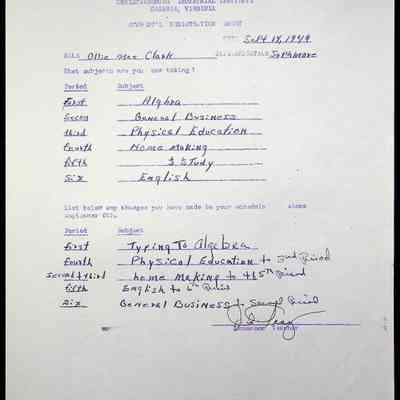 CHRISTIANSBURG INDUSTRIAL INSTITUTE
CAMBRIA, VIRGINIA
STUDENT'S REGISTRATION SHEET
DATE Sept 14, 1949
NAME Ollie Mae Clark CLASSIFICATION Sophmore
What subjects are you now taking?
Period Subject
First Algbra
Second General Business
third Physical Education
fourth Home Making
fifth Study
Six English
List below any changes you have made in your schedule since
September 6th.
Period Subject
First Typing To Algebra
Fourth Physical Education to 3rd Period
Second & third home Making to 4th 5th Period
fifth English to 6th Period
Six General Business to Second Period
Homeroom Teacher